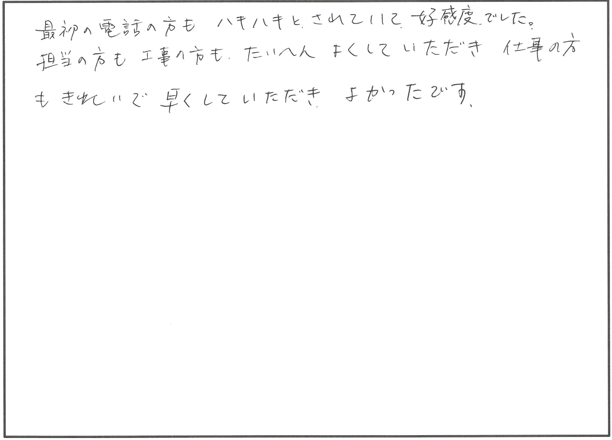 最初の電話の方も ハキハキと、されていて、好感度でした。
担当の方も 工事の方も、たいへん よくしていただき 仕事の方
も きれいで 早くしていただき よかったです。